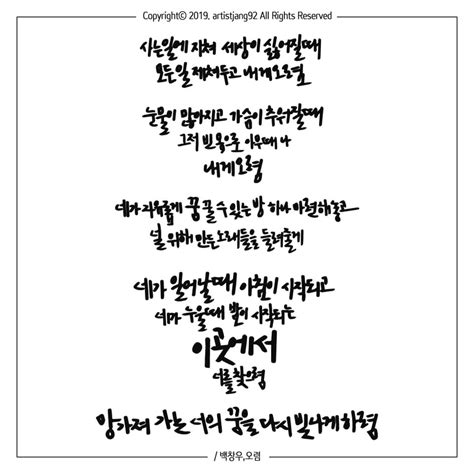 Copyright© 2019, artistjang92 All Rights Reserved
사는일에 지쳐 세상이 싫어질때
모든일 제쳐두고 내게오렴
눈물이 많아지고 가슴이 추워질때
그저 빈 몸으로 아무때나
내게오렴
네가 자유롭게 꿈 꿀 수 있는 방 하나 마련해놓고
널 위해 만든 노래들을 들려줄게
네가 일어날때 아침이 시작되고
네가 누울때 밤이 시작되는
이곳에서
너를찾으렴
망가져 가는 너의 꿈을 다시 빛나게 하렴
/ 백창우,오렴